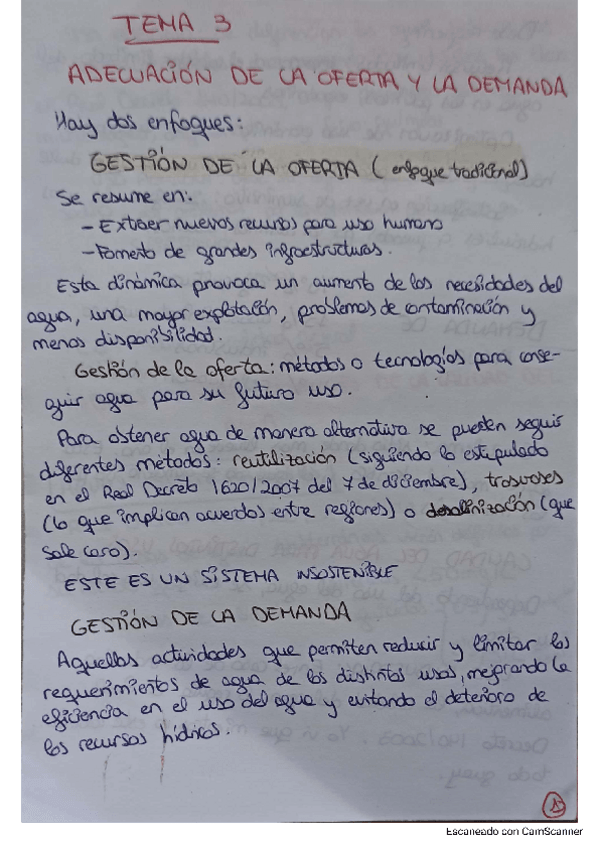 TEMA 3
ADECUACIÓN DE LA OFERTA Y LA DEMANDA
Hay dos enfoques:
GESTIÓN DE LA OFERTA (enfoque tradicional)
Se resume en:
- Extraer nuevos recursos para uso humano
- Fomento de grandes infraestructuras.
Esta dinámica provoca un aumento de las necesidades del
agua, una mayor explotación, problemas de contaminación y
menos disponibilidad.
Gestión de la oferta: métodos o tecnologías para conse-
guir agua para su futuro uso.
Para obtener agua de manera alternativa se pueden seguir
diferentes métodos: reutilización (siguiendo lo estipulado
en el Real Decreto 1620/2007 del 7 de diciembre), trasvases
(lo que implican acuerdos entre regiones) o desalinización (que
sale caro).
ESTE ES UN SISTEMA INSOSTENIBLE
GESTIÓN DE LA DEMANDA
Aquellas actividades que permiten reducir y limitar los
requerimientos de agua de los distintos usos, mejorando la
eficiencia en el uso del agua y evitando el deterioro de
los recursos hídricos.
Escaneado con CamScanner